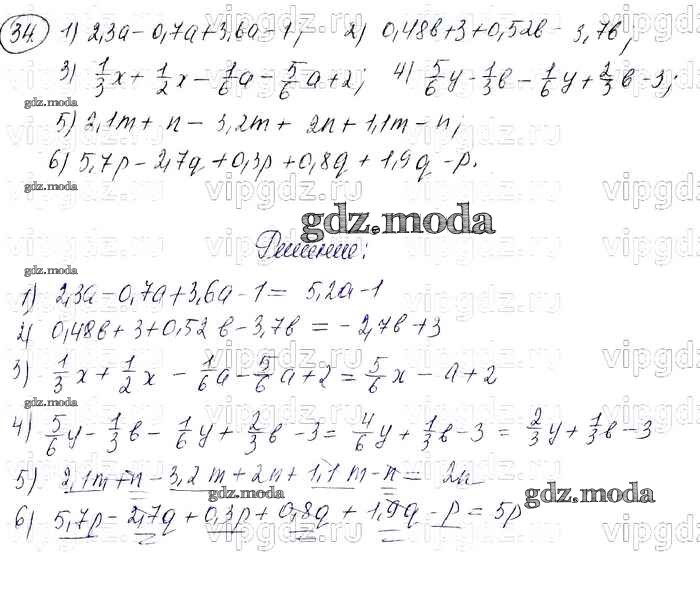 34. 1) 2,3a - 0,7a + 3,6a - 1; 2) 0,48в + 3 + 0,52в - 3,7в;
3) 1/3 x + 1/2 x - 1/6 a - 5/6 a + 2; 4) 5/6 y - 1/3 в - 1/6 y + 2/3 в - 3;
gdz.moda
5) 2,1m + n - 3,2m + 2n + 1,1m - n;
6) 5,7p - 2,7q + 0,3p + 0,8q + 1,9q - p.
gdz.moda
gdz.moda
Решение:
gdz.moda
1) 2,3a - 0,7a + 3,6a - 1 = 5,2a - 1
2) 0,48в + 3 + 0,52в - 3,7в = - 2,7в + 3
3) 1/3 x + 1/2 x - 1/6 a - 5/6 a + 2 = 5/6 x - a + 2
4) 5/6 y - 1/3 в - 1/6 y + 2/3 в - 3 = 4/6 y + 1/3 в - 3 = 2/3 y + 1/3 в - 3
5) 2,1m + n - 3,2m + 2n + 1,1m - n = 2n
gdz.moda
gdz.moda
6) 5,7p - 2,7q + 0,3p + 0,8q + 1,9q - p = 5p
gdz.moda
vipgdz.ru